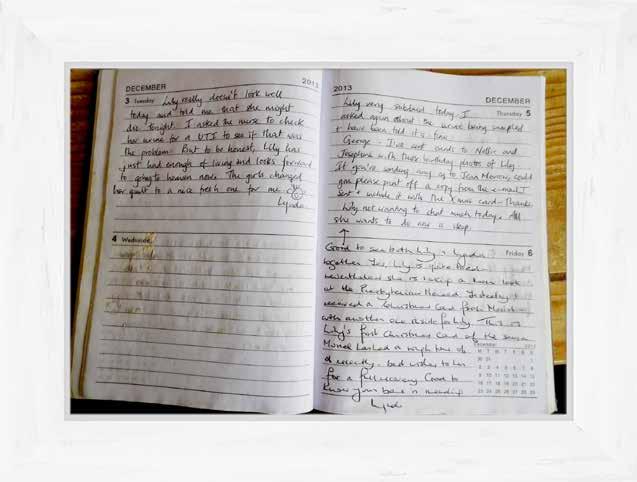 DECEMBER 2013
3 Tuesday Lily really doesn't look well
today and told me that she might
die tonight. I asked the nurse to check
her urine for a UTI to see if that was
the problem. But to be honest, Lily has
just had enough of living and looks forward
to going to heaven now. The girls changed
her quilt to a nice fresh one for me.
Lynda
4 Wednesday
2013 DECEMBER
Lily very subdued today. I Thursday 5
asked again about the urine being sampled
& have been told it's fine.
George - I've sent cards to Nellie and
Josephine with those birthday photos of Lily.
If you're sending any to Jean Morrow, could
you please print off a copy from the e-mail I
sent & include it with the Xmas card - Thanks
Lily not wanting to chat much today. All
she wants to do now is sleep.
Good to see both Lily & Lynda Friday 6
together. Yes, Lily is quite tired
nevertheless she is
at the Presbyterian Herald. Yesterday I
received a Christmas Card from Muriel
with another one inside for Lily. This is
Lily's first Christmas Card of the season
Muriel has had a rough time of
it recently - best wishes to her
for a full recovery Good to
know your back is mending
Lynda
December 2013
M T W T F S S
30 31 1
2 3 4 5 6 7 8
9 10 11 12 13 14 15
16 17 18 19 20 21 22
23 24 25 26 27 28 29